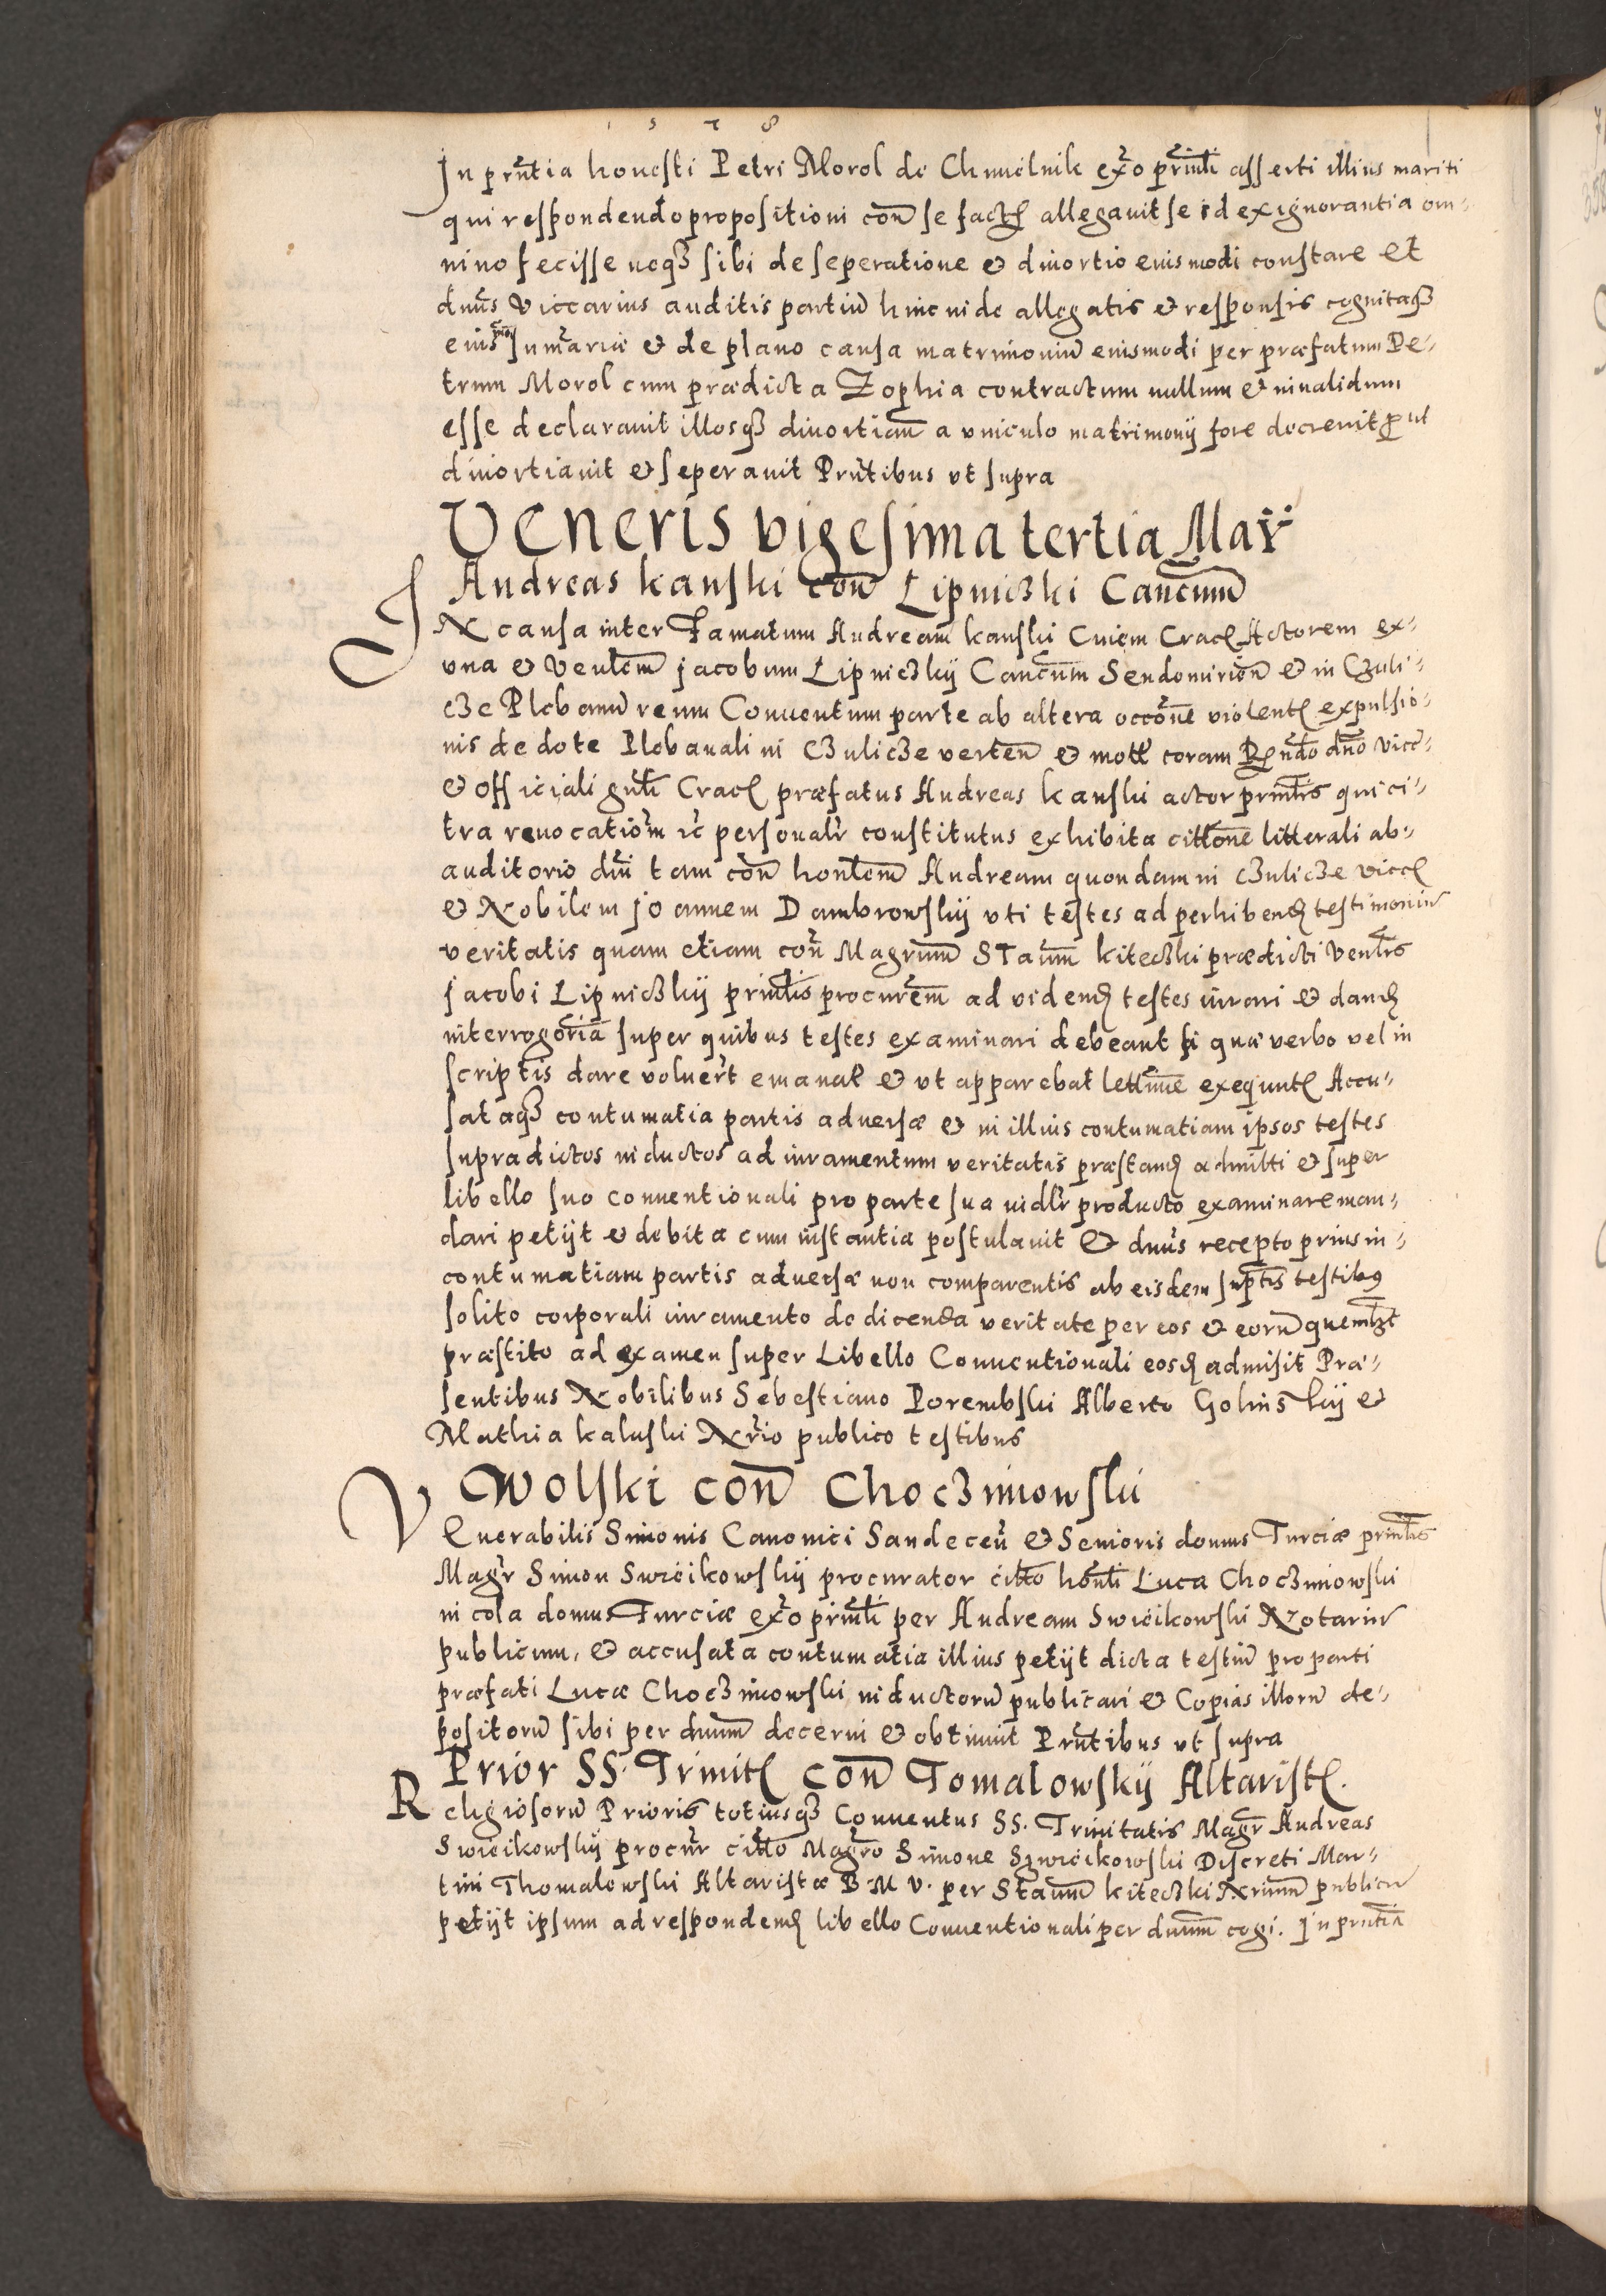 1578
In prñtia honesti Petri Morol de Chmielnik ex̃o prinłi asserti illius mariti
qui respondendo propositioni coñ se fact allegauit se id ex ignorantia om-
nino fecisse neqȝ sibi de seperatione & diuortio euismodi constare et
dnus Viccarius auditis partiũ hinc inde allegatis & responsis cognitaqȝ
eius sum̃ariæ & de plano causa matrimoniũ euismodi per præfatum Pe-
trum Morol cum prædicta Zophia contractum nullum & inualidum
esse declarauit illosqȝ diuortian̄ a vniculo matrimonij fore decreuit put
diuortiauit & seperauit Prñtibus vt supra
Veneris vigesima tertia Maÿ
Andreas kanski coñ Lipniczki Cancum
IN causa inter Famatum Andream kanski Ciuem Crac Actorem ex-
vna & Venłem jacobum Lipniczkij Cancum Sendomirień & in Czuli-
cze Plebanũ reum Conuentum parte ab altera occone violent expulsio-
nis de dote Plebanali in Czulicze verteñ & mott coram Rndo dño vicc-
& officiali gnłi Crac præfatus Andreas kanski actor prinłis qui ci-
tra reuocationm ic personalr constitutus exhibita cittone litterali ab-
auditorio dñi tam coñ honłem Andream quondam in Czulicze vicc
& Nobilem joannem Dambrowskij vti testes ad perhibend testimoniũ
veritatis quam etiam coñ Magrum STaum kiteczki prædicti Venłis
jacobi Lipniczkij prinłis procurem ad videnđ testes iurari & danđ
interrogoria super quibus testes examinari debeant si quæ verbo vel in
scriptis dare voluert emanat & vt apparebat lettime exequut Accu-
sataqȝ contumatia partis aduersæ & in illius contumatiam ipsos testes
supradictos inductos ad iuramentum veritatis præstanđ admitti & super
libello suo conuentionali pro parte sua uidlr producto examinare man-
dari petijt & debita cum instantia postulauit & dnus recepto prius in-
contumatiam partis aduersæ non comparentis ab eisdem suptis testibus
solito corporali iuramento de dicenda veritate per eos & eorũ quemlȝt
præstito ad examen super Libello Conuentionali eosđ admisit Præ-
sentibus Nobilibus Sebestiano Porembski Alberto Golinskij &
Mathia kaluski Nrio publico testibus
Wolski coñ Choczimowski
VEnerabilis Simonis Canonici Sandeceñ & Senioris domus Turciæ prinłis
Magr Simon Swiëikowskij procurator citto honłi Luca Choczimowski
incola domus Turciæ ex̃o prinłi per Andream Swiëikowski Notariũ
publicum, & accusata contumatia illius petijt dicta testiũ pro parti
præfati Lucæ Choczimowski inductorũ publicari & Copias illorũ de-
positorũ sibi per dnum decerni & obtinuit Prñtibus vt supra
Prior SS. Trinit coñ Tomalowskij Altarist.
Religiosorũ Prioris totiusqȝ Conuentus SS. Trinitatis Magr Andreas
Swiëikowskij procur citto Magro Simone Szwiëikowski Discreti Mar-
tini Thomalowski Altaristæ B M V. per Staum kiteczki Nrium publicũ
petijt ipsum ad respondenđ libello Conuentionali per dnum cogi. In prñtia